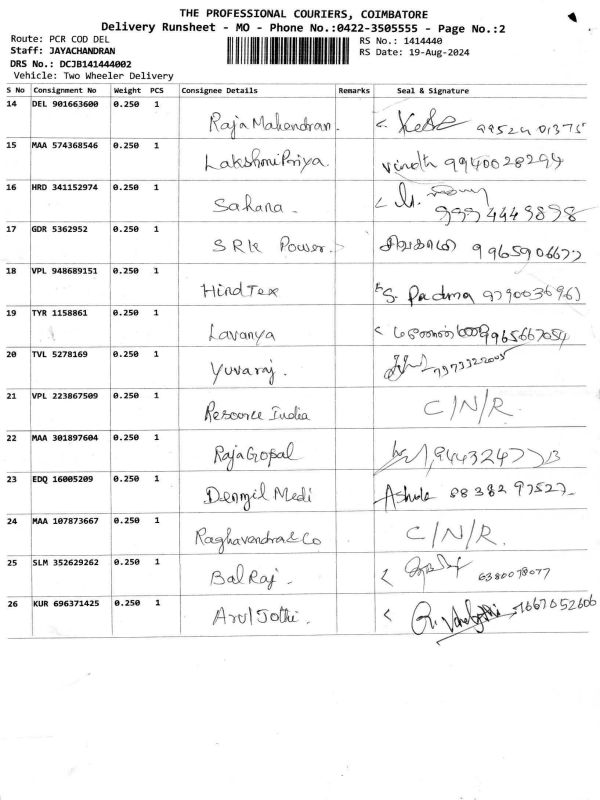 THE PROFESSIONAL COURIERS, COIMBATORE
Delivery Runsheet - MO - Phone No.:0422-3505555 - Page No.:2
Route: PCR COD DEL
Staff: JAYACHANDRAN
DRS No.: DCJB141444002
Vehicle: Two Wheeler Delivery
RS No.: 1414440
RS Date: 19-Aug-2024
S No Consignment No Weight PCS Consignee Details Remarks Seal & Signature
14 DEL 901663600 0.250 1 Raja Mahendran.
15 MAA 574368546 0.250 1 Lakshmi Priya. Vindth 9940028294
16 HRD 341152974 0.250 1 Sahana. 9994449898
17 GDR 5362952 0.250 1 SRK Power. சிவகாமி 9965906677
18 VPL 948689151 0.250 1 HindTex S. Padma 9790036963
19 TYR 1158861 0.250 1 Lavanya 9965667054
20 TVL 5278169 0.250 1 Yuvaraj. 7373322005
21 VPL 223867509 0.250 1 Resource India C/N/R.
22 MAA 301897604 0.250 1 RajaGopal
23 EDQ 16005209 0.250 1 Denzil Medi 88382 97527
24 MAA 107873667 0.250 1 Raghavendra & Co C/N/R.
25 SLM 352629262 0.250 1 BalRaj. 6380078077
26 KUR 696371425 0.250 1 Arul Jothi. 7667052606